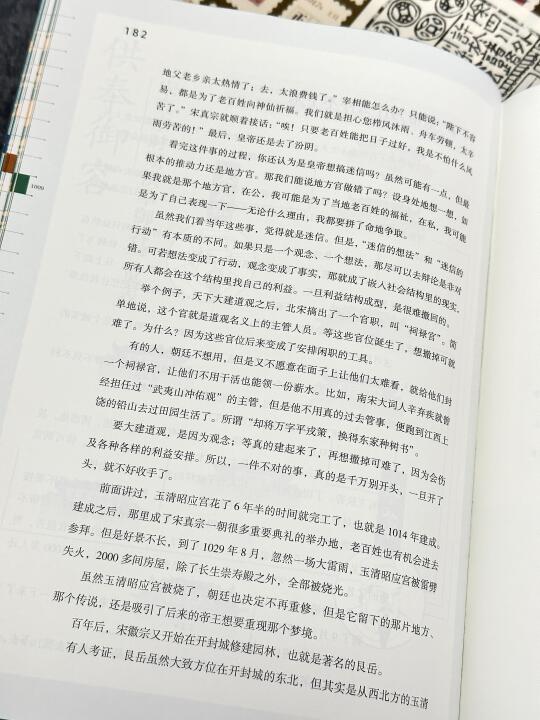 182
地父老乡亲太热情了；去，太浪费钱了。”宰相能怎么办？只能说：“陛下不容
易，都是为了老百姓向神仙祈福。我们就是担心您栉风沐雨、舟车劳顿，太辛
苦了。”宋真宗就顺着接话：“唉！只要老百姓能把日子过好，我是不怕什么风
雨劳苦的！”最后，皇帝还是去了汾阴。
看完这件事的过程，你还认为是皇帝想搞迷信吗？虽然可能有一点，但最
根本的推动力还是地方官。那我们能说地方官做错了吗？设身处地想一想，如
果我就是那个地方官，在公，我可能是为了当地老百姓的福祉，在私，我可能
是为了自己表现一下——无论什么理由，我都要拼了命地争取。
虽然我们看当年这些事，觉得就是迷信。但是，“迷信的想法”和“迷信的
行动”有本质的不同。如果只是一个观念、一个想法，那尽可以去辩论是非对
错。可若想法变成了行动，观念变成了事实，那就成了嵌入社会结构里的现实，
所有人都会在这个结构里找自己的利益。一旦利益结构成型，是很难撤回的。
举个例子，天下大建道观之后，北宋搞出了一个官职，叫“祠禄官”。简
单地说，这个官就是道观名义上的主管人员。等这些官位诞生了，想撤掉可就
难了。为什么？因为这些官位后来变成了安排闲职的工具。
有的人，朝廷不想用，但是又不愿意在面子上让他们太难看，就给他们封
一个祠禄官，让他们不用干活也能领一份薪水。比如，南宋大词人辛弃疾就曾
经担任过“武夷山冲佑观”的主管，但是他不用真的过去管事，便跑到江西上
饶的铅山去过田园生活了。所谓“却将万字平戎策，换得东家种树书”。
要大建道观，是因为观念；等真的建起来了，再想撤掉可难了，因为会伤
及各种各样的利益安排。所以，一件不对的事，真的是千万别开头，一旦开了
头，就不好收手了。
前面讲过，玉清昭应宫花了6年半的时间就完工了，也就是1014年建成。
建成之后，那里成了宋真宗一朝很多重要典礼的举办地，老百姓也有机会进去
参拜。但是好景不长，到了1029年8月，忽然一场大雷雨，玉清昭应宫被雷劈
失火，2000多间房屋，除了长生崇寿殿之外，全部被烧光。
虽然玉清昭应宫被烧了，朝廷也决定不再重修，但是它留下的那片地方、
那个传说，还是吸引了后来的帝王想要重现那个梦境。
百年后，宋徽宗又开始在开封城修建园林，也就是著名的艮岳。
有人考证，艮岳虽然大致方位在开封城的东北，但其实是从西北方的玉清
1009